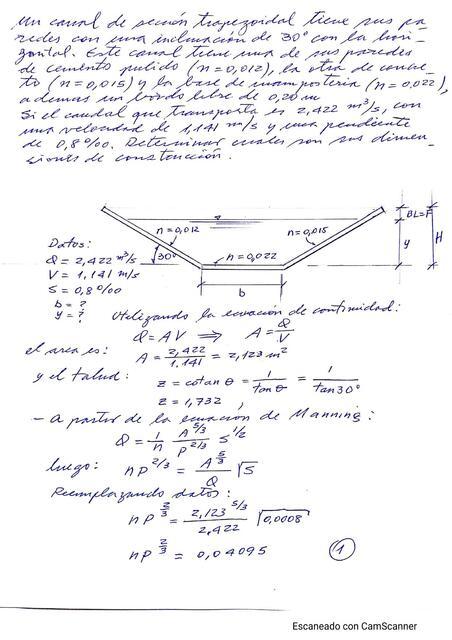 Un canal de sección trapezoidal tiene sus pa
redes con una inclinación de 30° con la hori-
zontal. Este canal tiene una de sus paredes
de cemento pulido (n=0,012), la otra de concre
to (n=0,015) y la base de mampostería (n=0,022),
además un bordo libre de 0,20 m
Si el caudal que transporta es 2,422 m³/s, con
una velocidad de 1,141 m/s y una pendiente
de 0,8 ‰. Determinar cuales son sus dimen-
siones de construcción.
BL=F
n=0,012
n=0,015
30°
n=0,022
y
H
b
Datos:
Q = 2,422 m³/s
V = 1,141 m/s
S = 0,8 ‰
b = ?
y = ?
Utilizando la ecuación de continuidad:
Q = AV ⟹ A = Q/V
el area es: A = 2,422/1,141 = 2,123 m²
y el talud: z = cotan θ = 1/tan θ = 1/tan30°
z = 1,732,
- A partir de la ecuación de Manning:
Q = 1/n A^5/3/P^2/3 S^1/2
luego: nP^2/3 = A^5/3/Q √S
Reemplazando datos:
nP^2/3 = 2,123^5/3/2,422 √0,0008
nP^2/3 = 0,04095 (1)
Escaneado con CamScanner